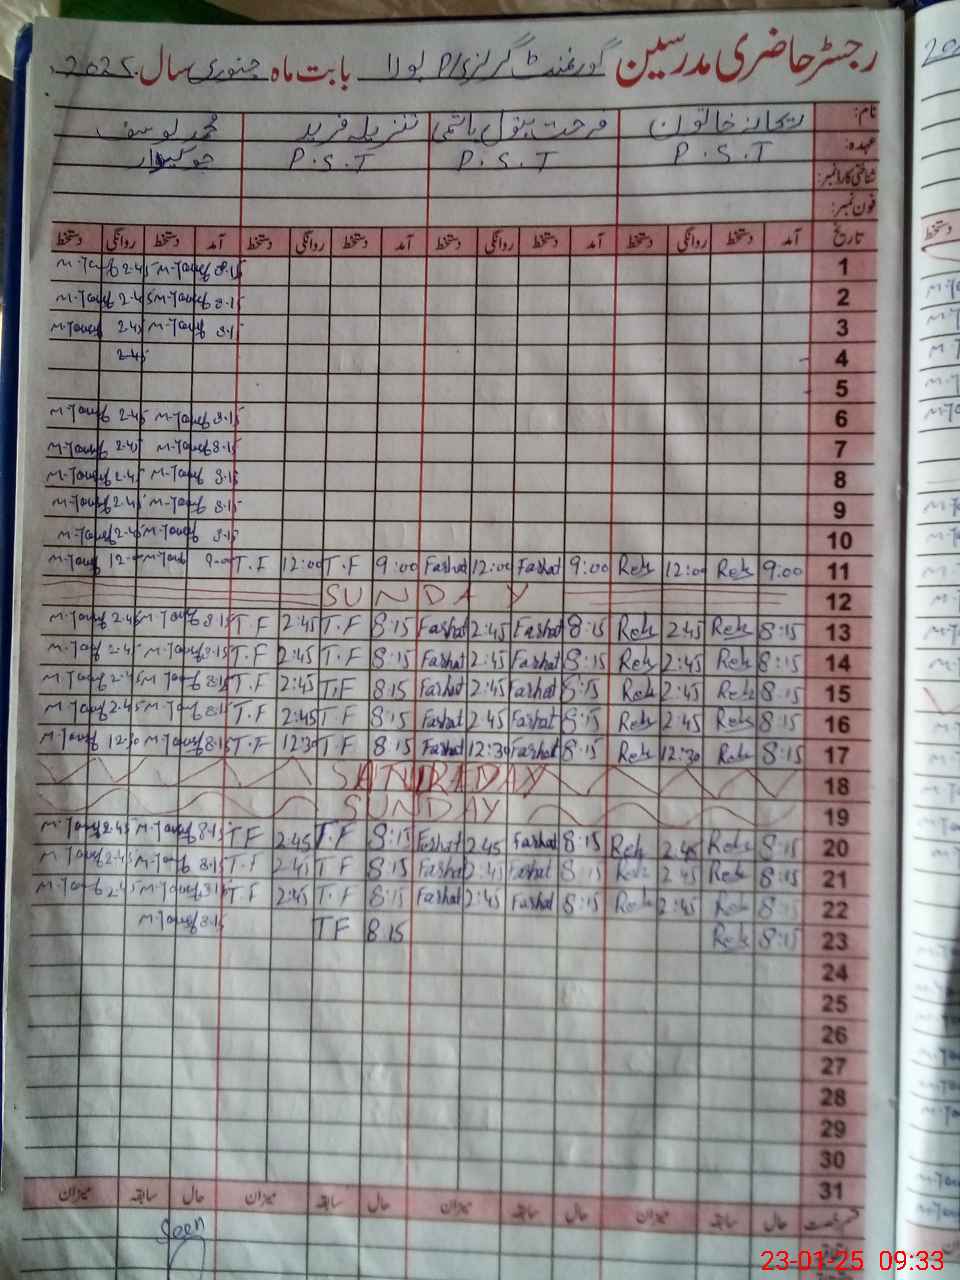 رجسٹر حاضری مدرسین گورنمنٹ گرلز P/S بابت ماہ جنوری سال 2025
نام: ریحانہ خاتون فرحت بتول ہاشمی تنزیلہ فرید محمد یوسف
عہدہ: P.S.T P.S.T P.S.T چوکیدار
شناختی کارڈ نمبر:
فون نمبر:
تاریخ آمد دستخط روانگی دستخط آمد دستخط روانگی دستخط آمد دستخط روانگی دستخط آمد دستخط روانگی دستخط
M-Yousf 2-45 M-Yousf 8-15 1
M-Yousf 2-45 M-Yousf 8-15 2
M-Yousf 2-45 M-Yousf 8-15 3
2-45 4
5
M-Yousf 2-45 M-Yousf 8-15 6
M-Yousf 2-45 M-Yousf 8-15 7
M-Yousf 2-45 M-Yousf 8-15 8
M-Yousf 2-45 M-Yousf 8-15 9
M-Yousf 2-45 M-Yousf 8-15 10
M-Yousf 12-00 M-Yousf 9-00 T.F 12:00 T.F 9:00 Farhat 12:00 Farhat 9:00 Reh 12:00 Reh 9:00 11
SUNDAY 12
M-Yousf 2-45 M-Yousf 8-15 T.F 2:45 T.F 8:15 Farhat 2:45 Farhat 8:15 Reh 2:45 Reh 8:15 13
M-Yousf 2-45 M-Yousf 8-15 T.F 2:45 T.F 8:15 Farhat 2:45 Farhat 8:15 Reh 2:45 Reh 8:15 14
M-Yousf 2-45 M-Yousf 8-15 T.F 2:45 T.F 8:15 Farhat 2:45 Farhat 8:15 Reh 2:45 Reh 8:15 15
M-Yousf 2-45 M-Yousf 8-15 T.F 2:45 T.F 8:15 Farhat 2:45 Farhat 8:15 Reh 2:45 Reh 8:15 16
M-Yousf 12-30 M-Yousf 8-15 T.F 12:30 T.F 8:15 Farhat 12:30 Farhat 8:15 Reh 12:30 Reh 8:15 17
SATURADAY 18
SUNDAY 19
M-Yousf 2-45 M-Yousf 8-15 T.F 2:45 T.F 8:15 Farhat 2:45 Farhat 8:15 Reh 2:45 Reh 8:15 20
M-Yousf 2-45 M-Yousf 8-15 T.F 2:45 T.F 8:15 Farhat 2:45 Farhat 8:15 Reh 2:45 Reh 8:15 21
M-Yousf 2-45 M-Yousf 8-15 T.F 2:45 T.F 8:15 Farhat 2:45 Farhat 8:15 Reh 2:45 Reh 8:15 22
M-Yousf 8-15 T F 8:15 Reh 8:15 23
24
25
26
27
28
29
30
31
حال سابقہ میزان حال سابقہ میزان حال سابقہ میزان حال سابقہ میزان
Seen
23-01-25 09:33